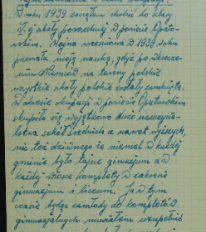 W roku 1939 zacząłem chodzić do klasy
V-ej szkoły powszechnej w powiecie Opatow-
skim. Wojna wrześniowa w 1939 roku
przerwała moją naukę, gdyż po wkrocze-
niu Niemców na tereny polskie
wszystkie szkoły polskie zostały zamknięte.
W okresie okupacji w powiecie Opatowskim
skupiło się wyjątkowo dużo nauczycie-
lstwa szkół średnich a nawet wyższych,
nic też dziwnego że niemal w każdej
gminie było tajne gimnazjum a
każdej wiosce komplety w zakresie
gimnazjum i liceum. Ja w tym
czasie będąc za młody do kompletów
gimnazjalnych musiałem uzupełnić